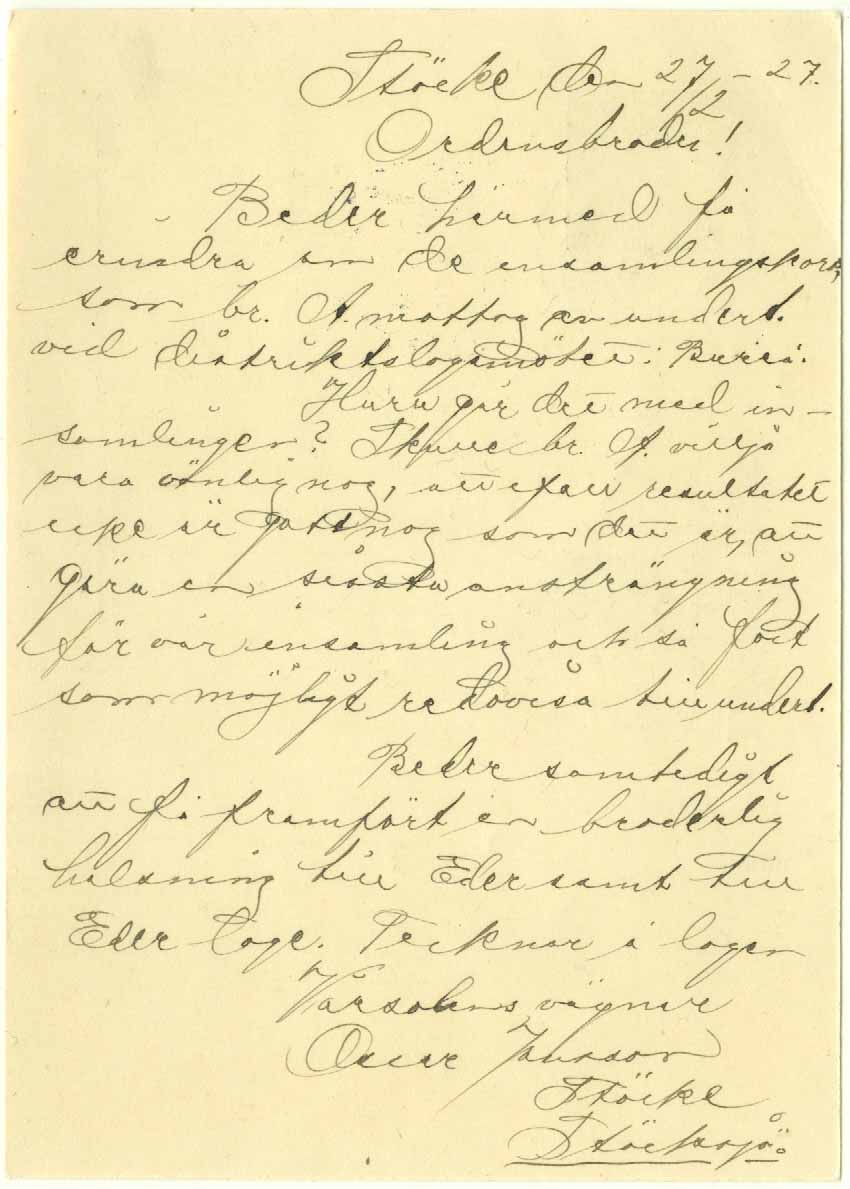 Stöcke den 27/2 - 27.
Ordensbroder!
Beder härmed få
erindra om de insamlingskort,
som br. A. mottog av undert.
vid distriktslogemötet i Bureå.
Huru går det med in-
samlingen? Skulle br. A. vilja
vara vänlig nog, att ifall resultatet
icke är gott nog som det är, att
göra en sista ansträngning
för vår insamling och så fort
som möjligt redovisa till undert.
Beder samtidigt
att få framfört en broderlig
hälsning till Eder samt till
Eder loge. Tecknar å logen
Vårsolens vägnar
Oscar
Stöcke
Stöcksjö.